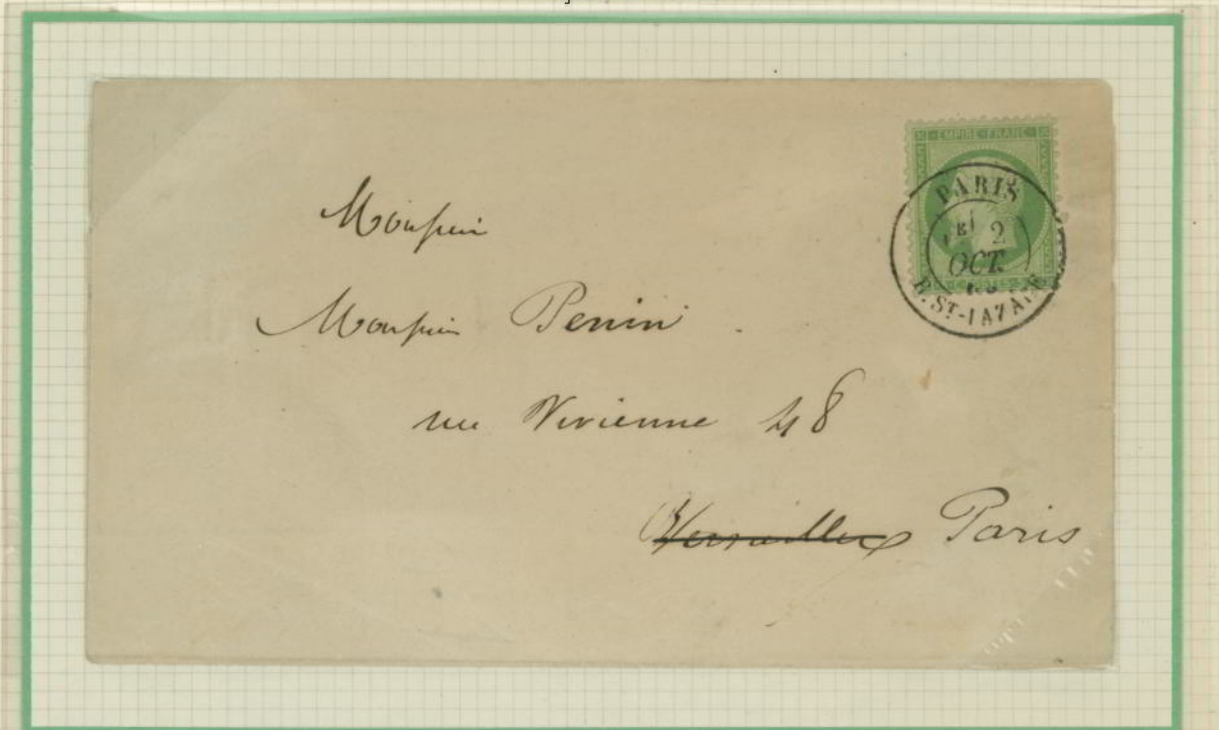 EMPIRE FRANC
PARIS
2
OCT.
R. ST-LAZARE
Monsieur
Monsieur Penin
rue Vivienne 48
Versailles Paris